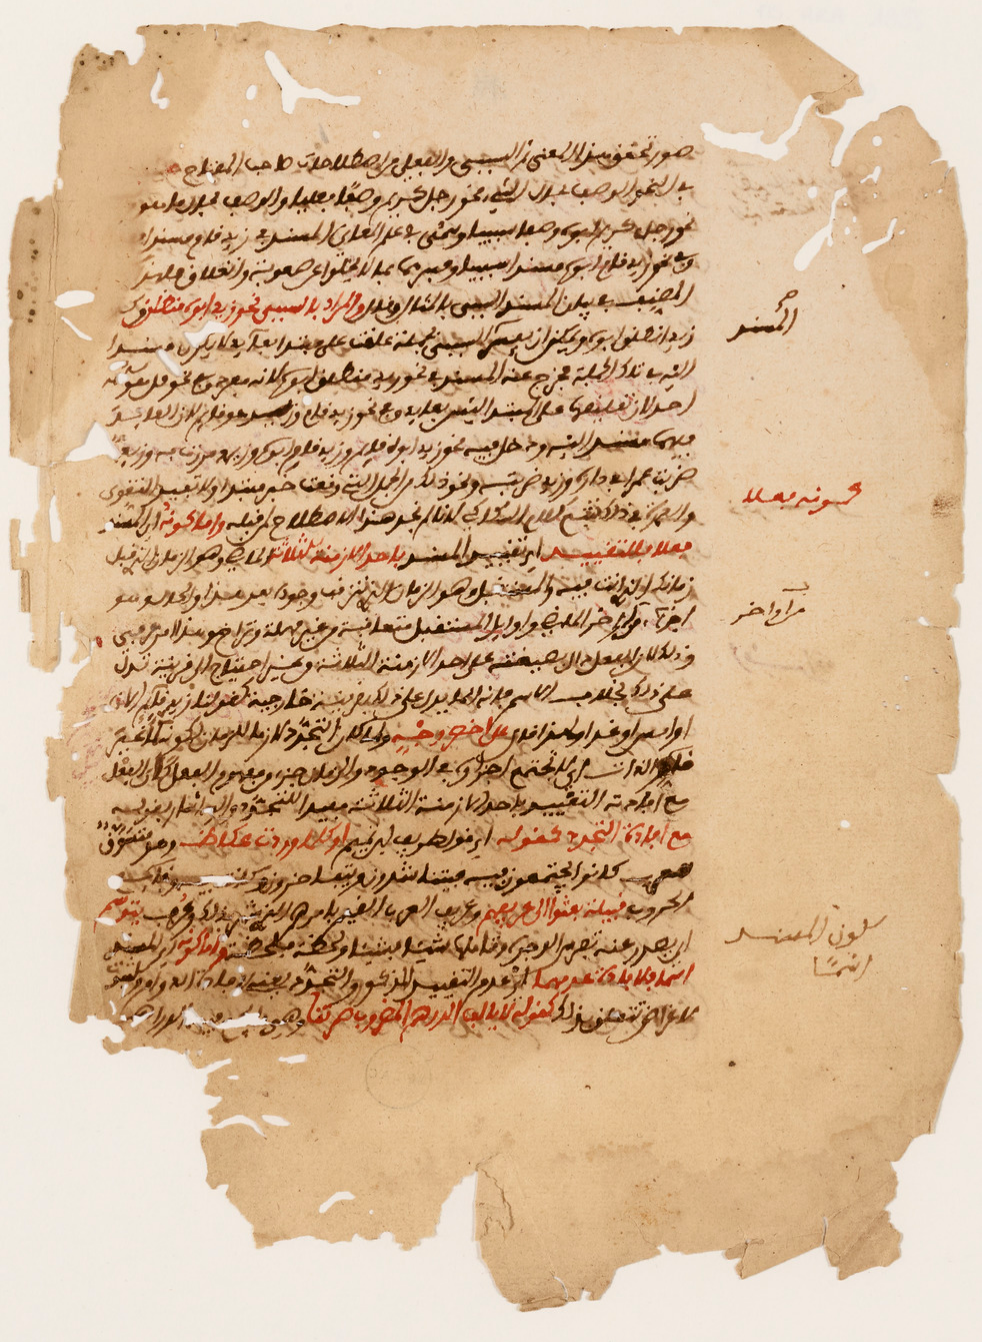 صور تحقق هذا المعنى ثم السببي والفعلي من اصطلاحات صاحب المفتاح
في النحو الوصف بحال الشيء نحو رجل كريم وصفا فعليا والوصف بحال ما هو
نحو رجل كريم ابوه وصفا سببيا وسمى في علم المعاني المسند في زيد قام مسندا
وفي نحو زيد قام ابوه مسندا سببيا وفسرهما بما لا يخلوا عن صعوبة وانغلاق
المصنف في بيان المسند السببي بالمثال وقال والمراد بالسببي نحو زيد ابوه منطلق وكذا
زيد انطلق ابوه ويمكن ان يفسر السببي بجملة علقت على مبتدا بعائد لا يكون مسندا
اليه في تلك الجملة فخرج عنه المسند في نحو زيد منطلق ابوه لانه مفرد وفي نحو قل هو الله
احد لان تعليقها على المبتدا ليس بعايد وفي نحو زيد قام وزيد هو قايم لان العايد
فيهما مسند اليه ودخل فيه نحو زيد ابوه قايم وزيد قام ابوه وزيد مررت به وزيد
ضربت عمرا في داره وزيد ضربته ونحو ذلك من الجمل التي وقعت خبر مبتدا ولا تفيد التقوى
والعمدة في ذلك تتبع كلام السكاكي لانا لم نجد هذا الاصطلاح لمن قبله واما كونه اي المسند
فعلا فللتقييد اي تقييد المسند باحد الازمنة الثلاثة الماضي وهو الزمان الذي قبل
زمانك الذي انت فيه والمستقبل وهو الزمان الذي يترقب وجوده بعد هذا والحال وهو
اجزاء من اواخر الماضي واوايل المستقبل متعاقبة من غير مهلة وتراخ وهذا امر عرفي
وذلك لان الفعل دال بصيغته على احد الازمنة الثلاثة من غير احتياج الى قرينة تدل
على ذلك بخلاف الاسم فانه انما يدل على ذلك بقرينة خارجية كقولنا زيد قايم الان
او امس او غدا ولهذا قال على اخصر وجه ولما كان التجدد لازما للزمان لكونه كما غير
قار الذات اي لا يجتمع اجزاوه في الوجود والزمان جزء من مفهوم الفعل كان الفعل
مع افادته التقييد باحد الازمنة الثلاثة مفيدا للتجدد واليه اشار بقوله
مع افادة التجدد كقوله اي قول طريف بن تميم او كلما وردت عكاظ وهو متسوق
للعرب كانوا يجتمعون فيه فيتناشدون ويتفاخرون وكانت فيه وقايع
الحروب قبيلة بعثوا الي عريفهم وعريف القوم القيم بامرهم الذي شهر بذلك وعرف يتوسم
اي يصدر عنه تفرس الوجوه وتاملها شيئا فشيئا ولحظة فلحظة واما كونه اي المسند
اسما فلافادة عدمهما اي عدم التقييد المذكور والتجدد يعني لافادة الدوام والثبوت
لاغراض تتعلق بذلك كقوله لا يالف الدرهم المضروب صرتنا وهو
المسند
كونه فعلا
من اواخر
كون المسند
اسما